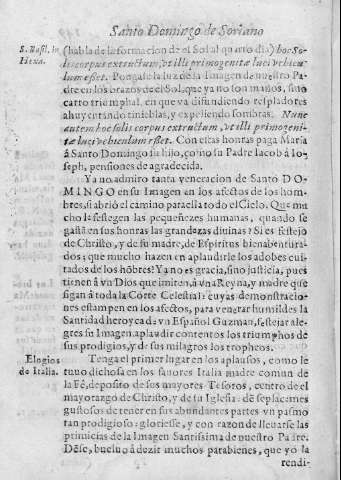 Santo Domingo de Soriano
S. Basil. in Hexa.
(habla de la formacion de el Sol al quarto dia) hoc So-
lis corpus extructum, vt illi primogenitæ luci vehicu-
lum esset. Pongase la luz de la Imagen de nuestro Pa-
dre en los brazos de el Sol, que ya no son manos, sino
carro triumphal, en que va difundiendo resplãdores
ahuyentando tinieblas, y expeliendo sombras: Nunc
autem hoc solis corpus extructum, vt illi primogeni-
tæ luci vehiculum esset. Con estas honras paga MARIA
á Santo Domingo su hijo, como su Padre Iacob à Io-
seph, pensiones de agradecida.
Ya no admiro tanta veneracion de Santo DO-
MINGO en su Imagen en los afectos de los hom-
bres, si abriò el camino para ella todo el Cielo. Que mu
cho le festegen las pequeñezes humanas, quando se
gastã en sus honras las grandezas divinas? Si es festejo
de Christo, y de su madre, de Espiritus bienabentura-
dos; que mucho hazen en aplaudirle los adobes cui-
tados de los hõbres? Ya no es gracia, sino justicia, pues
tienen â vn Dios que imiten, á vna Reyna, y madre que
sigan â toda la Corte Celestial: cuyas demonstracio-
nes estampen en los afectos, para venerar humildes la
Santidad heroyca de vn Español Guzman, festejar ale-
gres su Imagen aplaudir contentos los triumphos de
sus prodigios, y de sus milagros los tropheos.
Elogios de Italia.
Tenga el primer lugar en los aplausos, como le
tuuo dichosa en los fauores Italia madre comun de
la Fè, deposito de sus mayores Tesoros, centro de el
mayorazgo de Christo, y de su Iglesia: dè se placemes
gustosos de tener en sus abundantes partes vn pasmo
tan prodigioso: gloriesse, y con razon de lleuarse las
primicias de la Imagen Santissima de nuestro Padre.
Dẽse, bueluo à dezir muchos parabienes, que yo la
rendi-